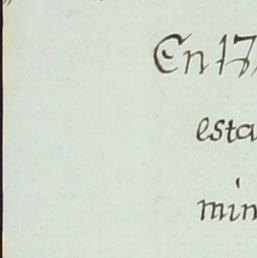 En 17
esta
min